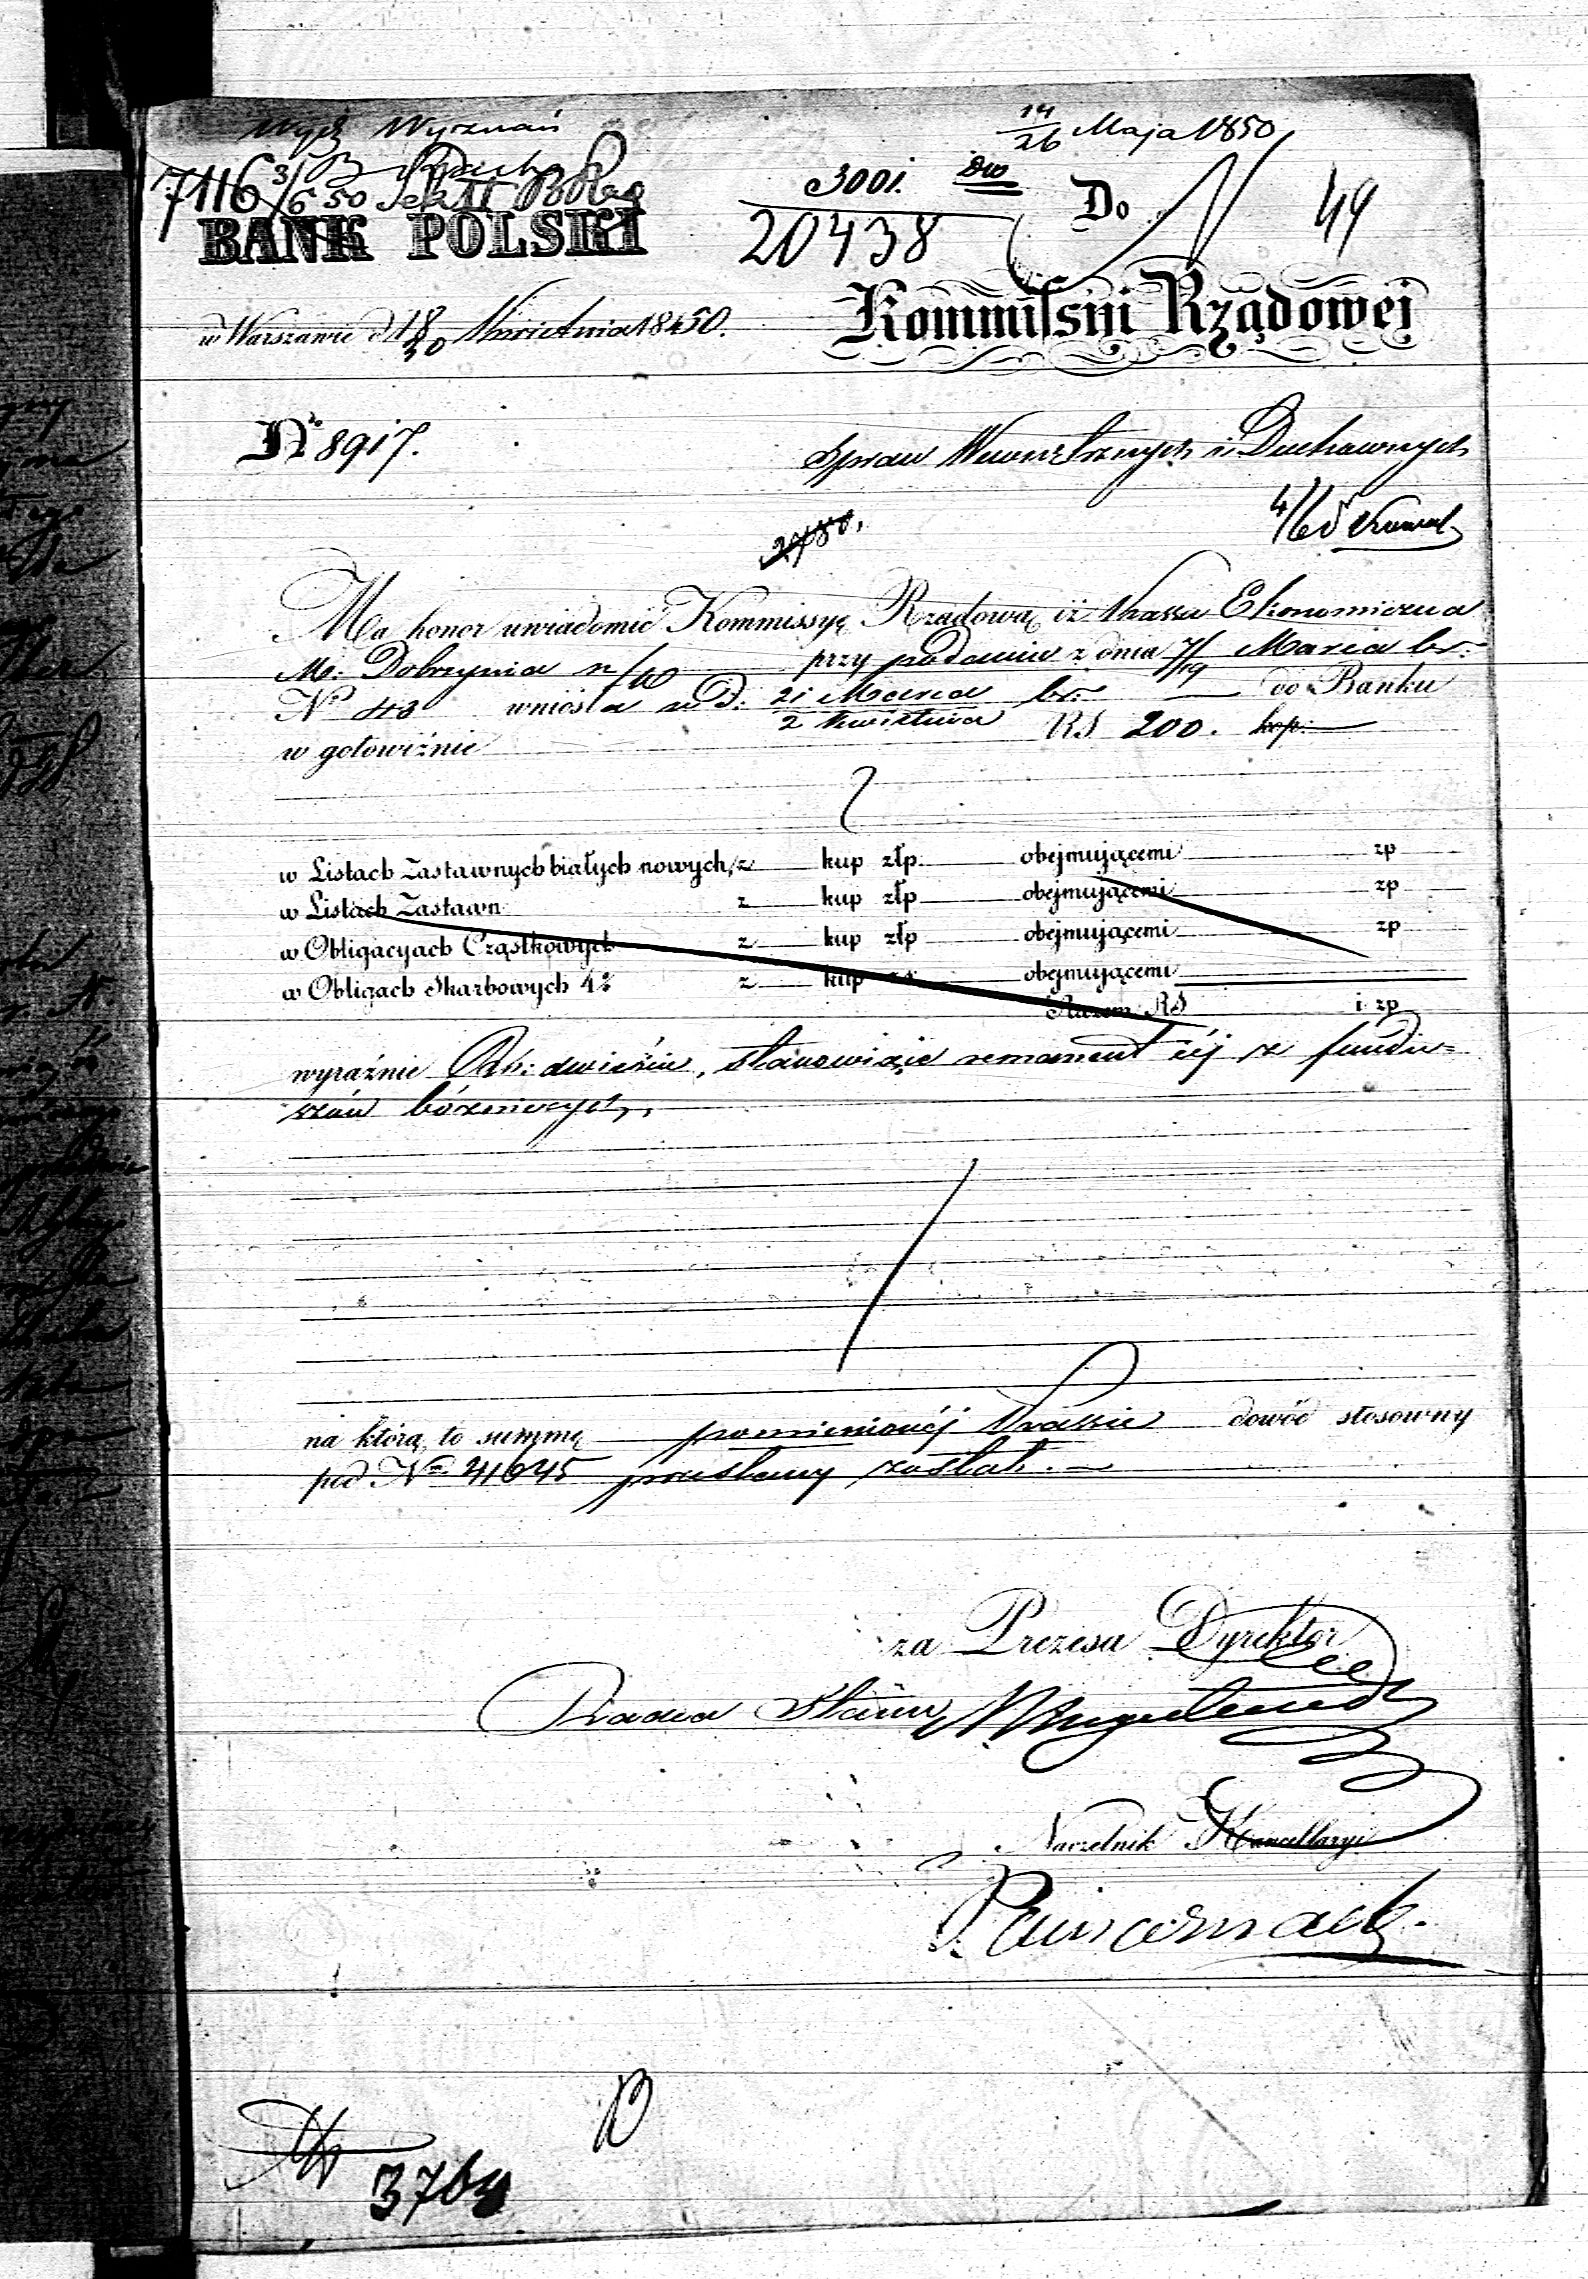 Wydz Wyznań
14/26 Maja 1850
7116 3/6 50 Sekt II
3001.
20438
Do
49
BANK POLSKI
Kommissyi Rządowej
w Warszawie d. 18/30 Kwietnia 1850.
No 8917.
Spraw Wewnętrznych i Duchownych
4/6
Ma honor uwiadomić Kommissyę Rządową iż Kassa Ekonomiczna
M. Dobrzynia n/W przy podaniu z dnia 7/19 Marca br.
No 43 wniosła w d. 21 Marca / 2 Kwietnia br. do Banku
w gotowiźnie RS 200. kop.
w Listach Zastawnych białych nowych, z kup złp. obejmującemi zp
w Listach Zastawn z kup złp obejmującemi zp
w Obligacyach Cząstkowych z kup złp obejmującemi zp
w Obligach Skarbowych 4% z kup obejmującemi
Razem RS i zp
wyraźnie Rb: dwieście, stanowiące remanent jéj z fundu=
szów bóżniczych,
na którą to summę pomienionéj Kassie dowód stosowny
pod No 41645 przesłany został. —
za Prezesa Dyrektor
Radca Stanu
Naczelnik Kancellaryi
3764